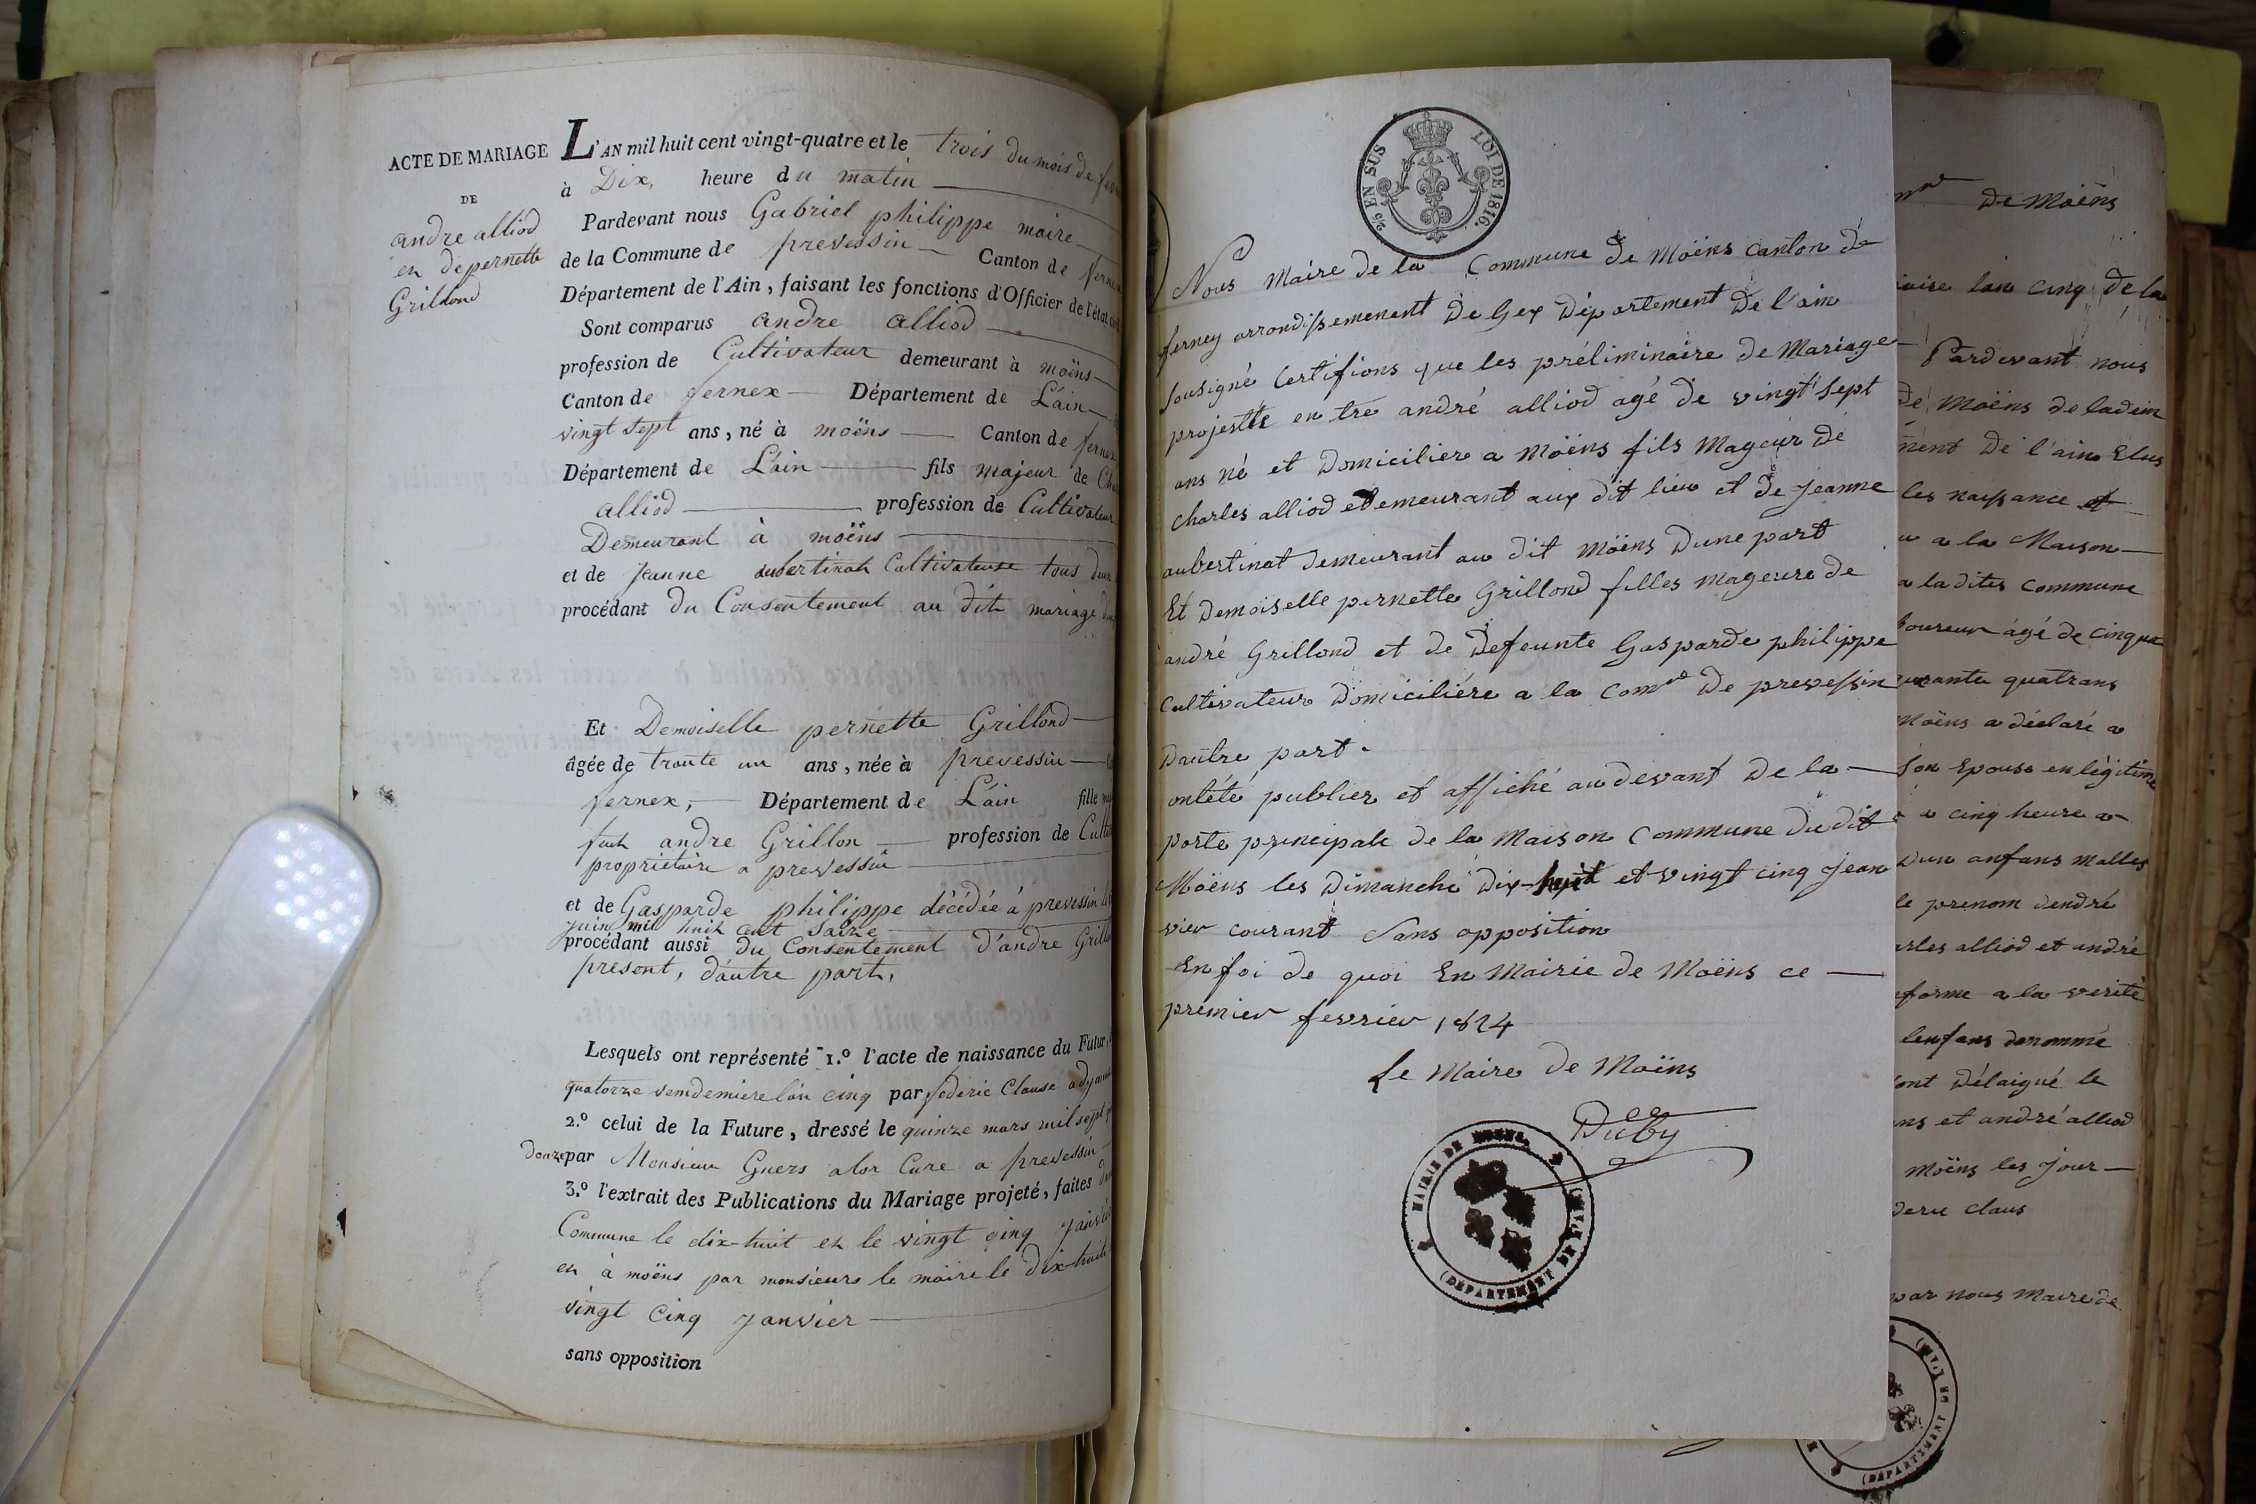 ACTE DE MARIAGE
DE
andre alliod
et depernette
Grillond
L'AN mil huit cent vingt-quatre et le trois du mois de
à Dix, heure du matin
Pardevant nous Gabriel philippe maire
de la Commune de prevessin Canton de
Département de l'Ain, faisant les fonctions d'Officier de l'état
Sont comparus andre alliod
profession de Cultivateur demeurant à moëns
Canton de fernex Département de L'ain
vingt sept ans, né à moëns Canton de fernex
Département de L'ain fils majeur de
alliod profession de Cultivateur
Demeurant à moëns
et de Jeanne aubertinat Cultivateuse tous
procédant du Consentement au dit mariage
Et Demoiselle pernette Grillond
âgée de trante un ans, née à prevessin
fernex, Département de L'ain fille
andre Grillon profession de
proprietaire a prevessin
et de Gasparde philippe décédée á prevessin
juin mil huit cent saize
procédant aussi du Consentement d'andre
present, d'autre part,
Lesquels ont représenté 1.º l'acte de naissance du Futur,
quatorze vemdemiere l'an cinq par federic Clause
2.º celui de la Future, dressé le quinze mars mil sept
donze par Monsieur Guers alor Cure a prevessin
3.º l'extrait des Publications du Mariage projeté, faites
Commune le dix-huit et le vingt cinq
et à moëns par monsieur le maire le Dix-huit
vingt cinq janvier
sans opposition
2/6 EN SUS LOI DE 1816.
Nous Maire de la Commune de Moëns Canton de
ferney arrondissemenent De Gex Département De l'ain
sousigné Certifions que les préliminaire de Mariage
projestté entre andré alliod agé de vingt sept
ans né et Domiciliere a Moëns fils Mageur de
Charles alliod etemeurant aux dit lieu et de Jeanne
aubertinat demeurant au dit Moëns Dune part
Et Demoiselle pernette Grillond filles mageure de
andré Grillond et de Defeunte Gasparde philippe
Cultivateur Domiciliére a la Comne De prevessin
Dautre part.
ontété publier et affiché audevant De la
porte principale de la Maison Commune Dudit
Moëns les Dimanche Dix-huit et vingt cinq Jean
vier courant Sans opposition
En foi de quoi En Mairie de Moëns ce
premier fevrier 1824
Le Maire de Moëns
Duby
MAIRIE DE MOENS, (DÉPARTEMENT DE L'AIN)
De Moëns
l'an cinq de la
Pardevant nous
de Moëns de ladein
De l'ain Elus
les naissance et
a la Maison
a ladites Commune
agé de cinqua
quatrans
Moëns a déclaré a
son Epouse en légitime
cinq heure a
Dun anfans malles
le prenom dendré
alliod et andré
a la verité
lenfans denommé
Délaigué le
et andré alliod
Moëns les Jour
claus
par nous Maire de
(DÉPARTEMENT DE L'AIN)